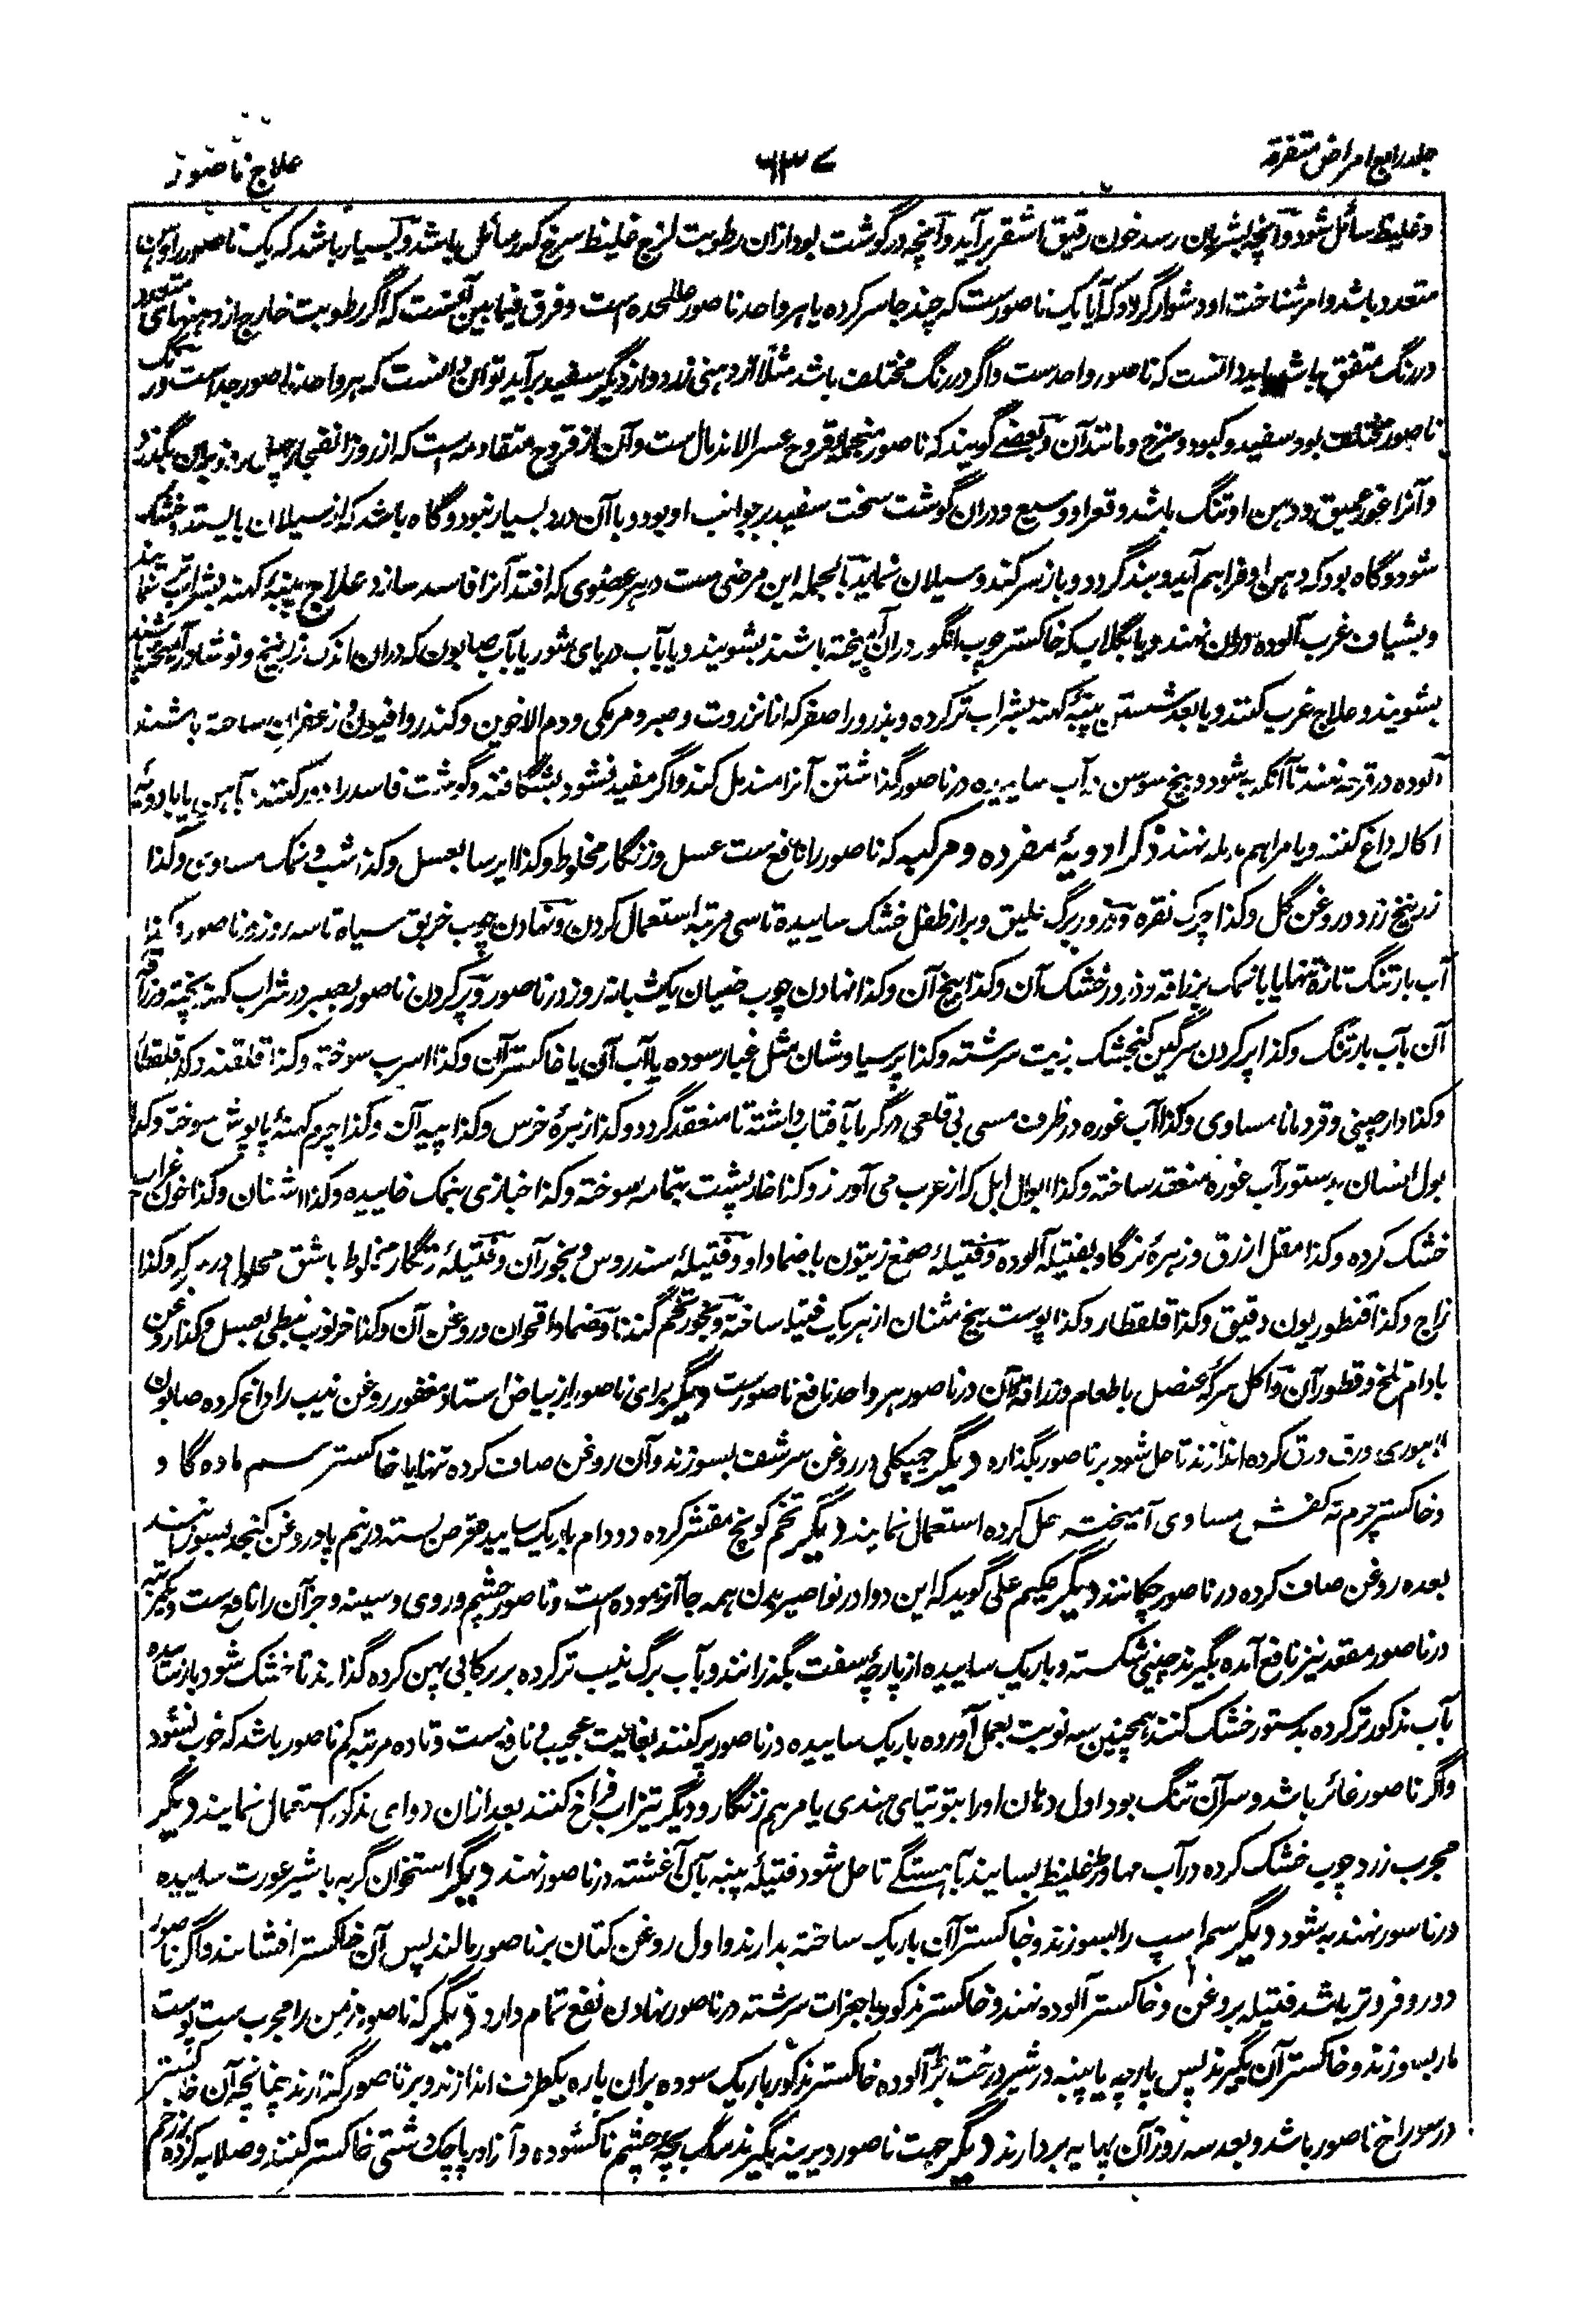 جلد رابع امراض متفرقہ
۶۳۷
علاج ناصور
و غلیظ سائل شود و آنچه بشریان رسد خون رقیق اشقر برآید و آنچه در گوشت بود ازان رطوبت لزج غلیظ سرخ کدر سائل باشد و بسیار باشد که یک ناصور را دهن
متعدد باشد و امر شناخت او دشوار گردد که آیا یک ناصورست که چند جا سر کرده یا هر واحد ناصور علٰحده است و فرق فیما بین آنست که اگر رطوبت خارج از دهنهای متعدد
در رنگ متفق باشد باید دانست که ناصور واحدست و اگر در رنگ مختلف باشد مثلاً از دهنی زرد و از دیگر سفید برآید توان دانست که هر واحد ناصور جداست و رنگ
ناصور مختلف بود سفید و کبود و سرخ و مانند آن و بعضے گویند که ناصور منجمله قروح عسر الاندمال ست و آن از قروح متقادمه است که از روز انفجار چهل روز بران بگذرد
و آنرا غور عمیق و دهن او تنگ باشد و قعر او وسیع و دران گوشت سخت سفید بر جوانب او بود و با آن درد بسیار نبود و گاه باشد که از سیلان باایستد و خشک
شود و گاه بود که دهن او فراهم آید و بند گردد و باز سر کند و سیلان نماید بالجمله این مرضی ست در هر عضوی که افتد آنرا فاسد سازد علاج پنبهٔ کهنه بشراب تر نمایند
و بشیاف غرب آلوده دران نهند و یا بگلاب که خاکستر چوب انگور دران آمیخته باشند بشویند و یا بآب دریای شور یا بآب صابون که دران اندک زرنیخ و نوشادر آمیخته باشند
بشویند و علاج غرب کنند و یا بعد شستن پنبهٔ کهنه بشراب تر کرده و بذرور اصفر که از انزروت و صبر و مر مکی و دم الاخوین و کندر و افیون و زعفران ساخته باشند
آلوده در قرحه نهند تا آنکه به شود و بیخ سوسن در آب ساییده در ناصور گذاشتن آنرا مندمل کند و اگر مفید نشود بشگافند و گوشت فاسد را دور کنند بآهن یا بادویهٔ
اکاله داغ کنند و یا مراهم مدمله نهند ذکر ادویهٔ مفرده و مرکبه که ناصور را نافع ست عسل و زنگار مخلوط و کذا ایرسا بعسل و کذا شب و نمک مساوی و کذا
زرنیخ زرد در روغن گل و کذا چرک نقره و ذرور برگ علیق و براز طفل خشک ساییده تا سی مرتبه استعمال کردن و نهادن چوب خربق سیاه تا سه روز در ناصور و کذا
آب بارتنگ تازه تنها یا با نمک بزراقه و ذرور خشک آن و کذا بیخ آن و کذا نهادن چوب ضیان یک شبانه روز در ناصور و پر کردن ناصور بصبر در شراب کهنه پخته و زراقه
آن بآب بارتنگ و کذا پر کردن سرگین کنجشک بزیت سرشته و کذا پرسیاوشان مثل غبار سوده یا آب آن یا خاکستر آن و کذا اسرب سوخته و کذا قلقند و کذا قلقطار
و کذا دارچینی و قردمانا مساوی و کذا آب غوره در ظرف مسی بی قلعی در گرما بآفتاب داشته تا منعقد گردد و کذا زهرهٔ خرس و کذا پیه آن و کذا چرم کهنهٔ پاپوش سوخته و کذا
بول انسان بدستور آب غوره منعقد ساخته و کذا ابوال ابل که از عرب می آورند و کذا خارپشت بتمامه سوخته و کذا خبازی بنمک خاییده و کذا اشنان و کذا خون غراب
خشک کرده و کذا مقل ازرق و زهرهٔ نرگاو بفتیله آلوده و فتیلهٔ صمغ زیتون یا ضماد او و فتیلهٔ سندروس و بخور آن و فتیلهٔ زنگار مخلوط باشق محلول در سرکه و کذا
زاج و کذا قنطوریون دقیق و کذا قلقطار و کذا پوست بیخ مثنان از هر یک فتیله ساخته و بخور تخم گندنا و ضماد اقحوان و روغن آن و کذا خرنوب نبطی بعسل و کذا روغن
بادام تلخ و قطور آن و اکل سرکهٔ عنصل با طعام و زراقه آن در ناصور هر واحد نافع ناصورست دیگر برای ناصور از بیاض استاد مغفور روغن نیب را داغ کرده صابون
لاهوری ورق ورق کرده اندازند تا حل شود بر ناصور بگذارد دیگر چپکلی در روغن سرشف بسوزند و آن روغن صاف کرده تنها یا خاکستر سم ماده گاو
و خاکستر چرم ته کفش مساوی آمیخته حل کرده استعمال نمایند دیگر تخم کونچ مقشر کرده دو دام باریک ساییده قرص بسته در نیم پاو روغن کنجد بسوزانند
بعده روغن صاف کرده در ناصور چکانند دیگر حکیم علی گوید که این دوا در نواصیر بدن همه جا آزموده است و ناصور چشم و روی و سینه و جز آن را نافع ست و یک مرتبه
در ناصور مقعد نیز نافع آمده بگیرند چینی شکسته و باریک ساییده از پارچهٔ سفت بگذرانند و بآب برگ نیب تر کرده بر رکابی پهن کرده گذارند تا خشک شود باز ساییده
بآب مذکور تر کرده بدستور خشک کنند همچنین سه نوبت بعمل آورده باریک ساییده در ناصور پر کنند بغایت عجیب و نافع ست و تا ده مرتبه کم ناصور باشد که خوب نشود
و اگر ناصور غائر باشد و سر آن تنگ بود اول دهان او را بتوتیای هندی یا مرهم زنگار و دیگر تیزاب فراخ کنند بعد ازان دوای مذکور استعمال نمایند دیگر
مجرب زرد چوب خشک کرده در آب مهاور غلیظ بسایند بآهستگے تا حل شود فتیلهٔ پنبه بآن آغشته در ناصور نهند دیگر استخوان گربه با شیر عورت ساییده
در ناسور نهند به شود دیگر سم اسپ را بسوزند و خاکستر آن باریک ساخته بدارند و اول روغن کتان بر ناصور بمالند پس آن خاکستر افشانند و اگر ناصور
دور و فروتر باشد فتیله بروغن و خاکستر آلوده نهند و خاکستر مذکور با جغرات سرشته در ناصور نهادن نفع تمام دارد دیگر که ناصور مزمن را مجرب ست پوست
مار بسوزند و خاکستر آن بگیرند پس پارچه یا پنبه در شیر درخت بڑ آلوده خاکستر مذکور باریک سوده بران پاره یکطرف اندازند و بر ناصور گذارند چنانچه آن خاکستر
در سوراخ ناصور باشد و بعد سه روز آن پهایه بردارند دیگر جهت ناصور دیرینه بگیرند سگ بچه چشم ناکشوده و آنرا در پاچک دشتی خاکستر کنند و صلایه کرده بر زخم